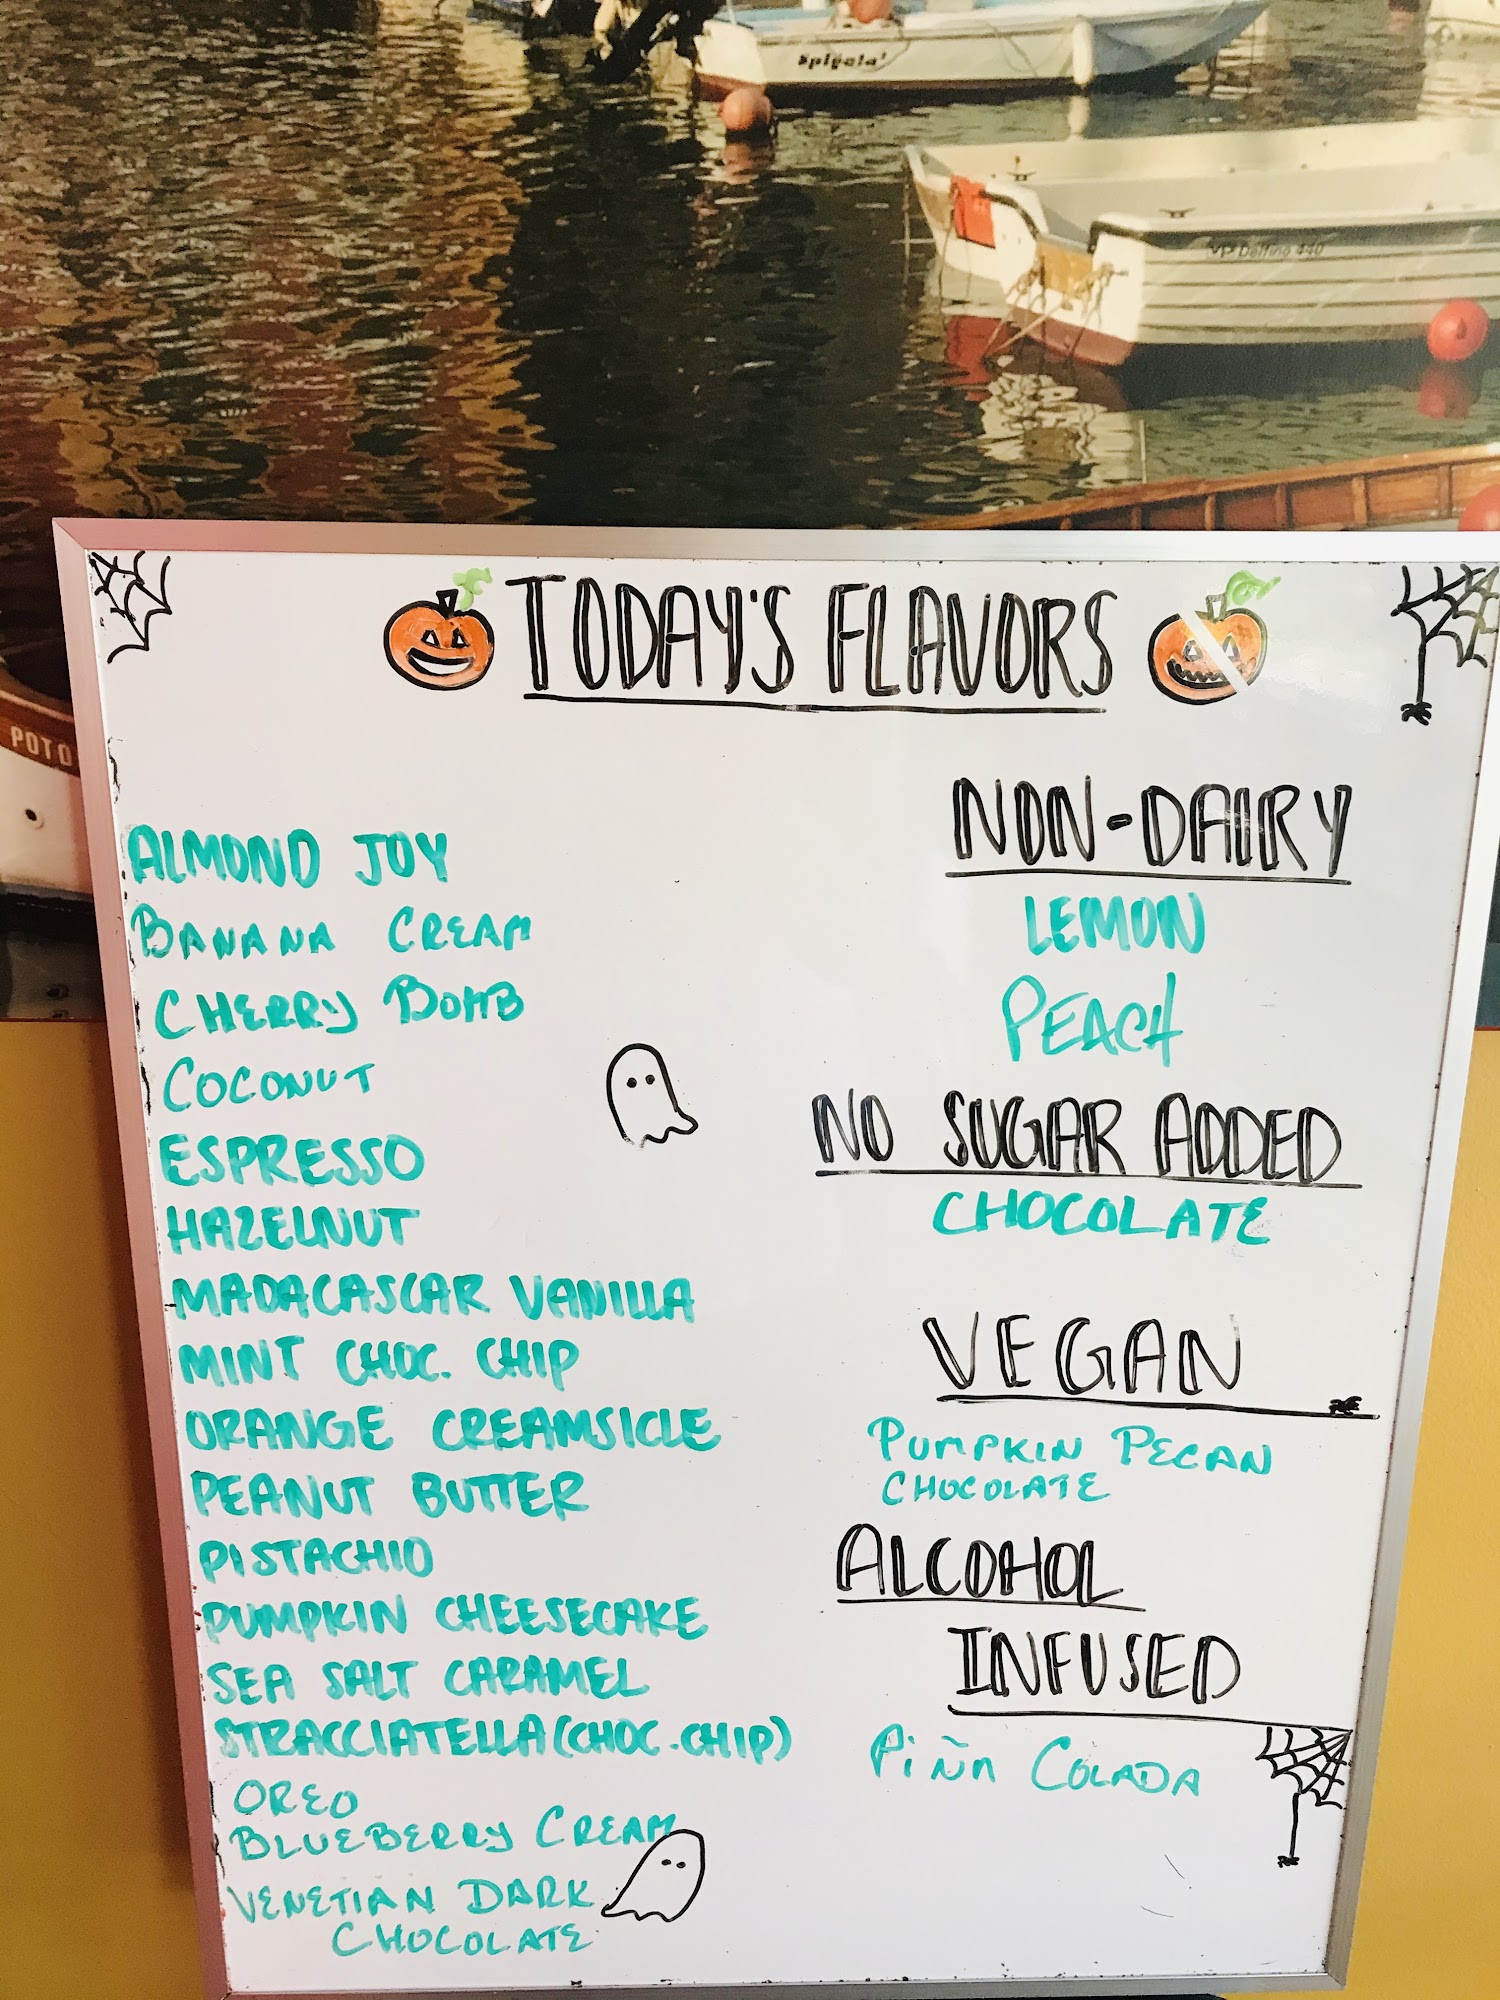 Spigola'
VP Delfino 440
POTO
TODAY'S FLAVORS
ALMOND JOY
BANANA CREAM
CHERRY BOMB
COCONUT
ESPRESSO
HAZELNUT
MADAGASCAR VANILLA
MINT CHOC. CHIP
ORANGE CREAMSICLE
PEANUT BUTTER
PISTACHIO
PUMPKIN CHEESECAKE
SEA SALT CARAMEL
STRACCIATELLA (CHOC.CHIP)
OREO
BLUEBERRY CREAM
VENETIAN DARK
CHOCOLATE
NON-DAIRY
LEMON
PEACH
NO SUGAR ADDED
CHOCOLATE
VEGAN
PUMPKIN PECAN
CHOCOLATE
ALCOHOL
INFUSED
PIÑA COLADA